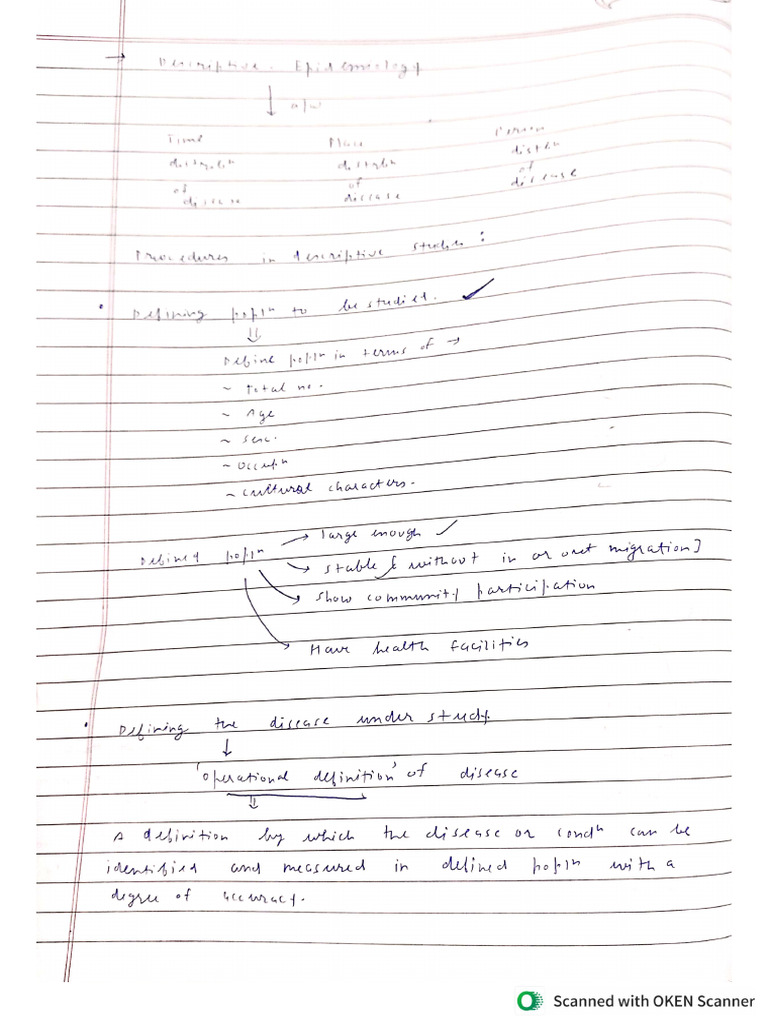 → Descriptive Epidemiology
↓ o/w
Time Place Person
distribⁿ distribⁿ distbⁿ
of of of
disease disease disease
Procedures in descriptive studies :
• Defining poplⁿ to be studied. ✓
⇓
Define poplⁿ in terms of →
~ Total no.
~ Age
~ Sex.
~ Occupⁿ
~ cultural characters.
Defined poplⁿ → large enough ✓
→ stable [ without in or out migration]
→ show community participation
→ Have health facilities
• Defining the disease under study.
↓
'operational definition' of disease
⇓
A definition by which the disease or condⁿ can be
identified and measured in defined poplⁿ with a
degree of accuracy.
Scanned with OKEN Scanner